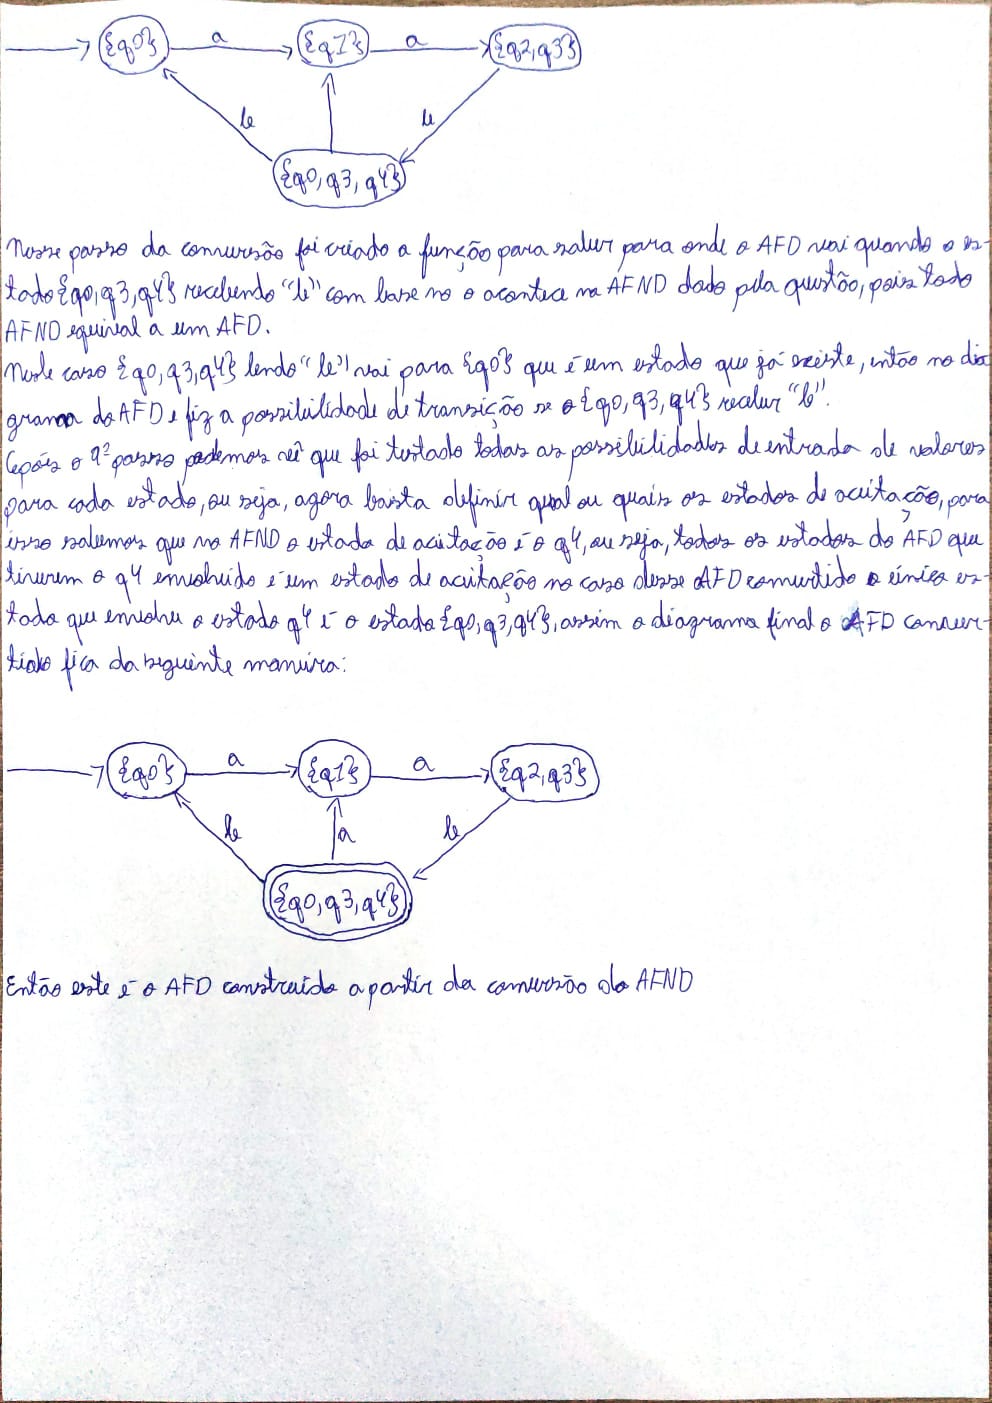 {q0} a {q1} a {q2,q3}
b b
{q0,q3,q4}
Nesse passo da conversão foi criado a função para saber para onde o AFD vai quando o es-
tado {q0,q3,q4} recebendo "b" com base no o acontece na AFND dado pela questão, pois todo
AFND equival a um AFD.
Neste caso {q0,q3,q4} lendo "b" vai para {q0} que é um estado que já existe, então no dia
grama do AFD e fiz a possibilidade de transição se o {q0,q3,q4} receber "b".
Após o 9º passo podemos vê que foi testado todas as possibilidades de entrada de valores
para cada estado, ou seja, agora basta definir qual ou quais os estados de aceitação, para
isso sabemos que no AFND o estado de aceitação é o q4, ou seja, todos os estados do AFD que
tiverem o q4 envolvido é um estado de aceitação no caso desse AFD convertido o único es-
tado que envolve o estado q4 é o estado {q0,q3,q4}, assim o diagrama final o AFD conver-
tido fica da seguinte maneira:
{q0} a {q1} a {q2,q3}
b a b
{q0,q3,q4}
Então este é o AFD construído a partir da conversão do AFND